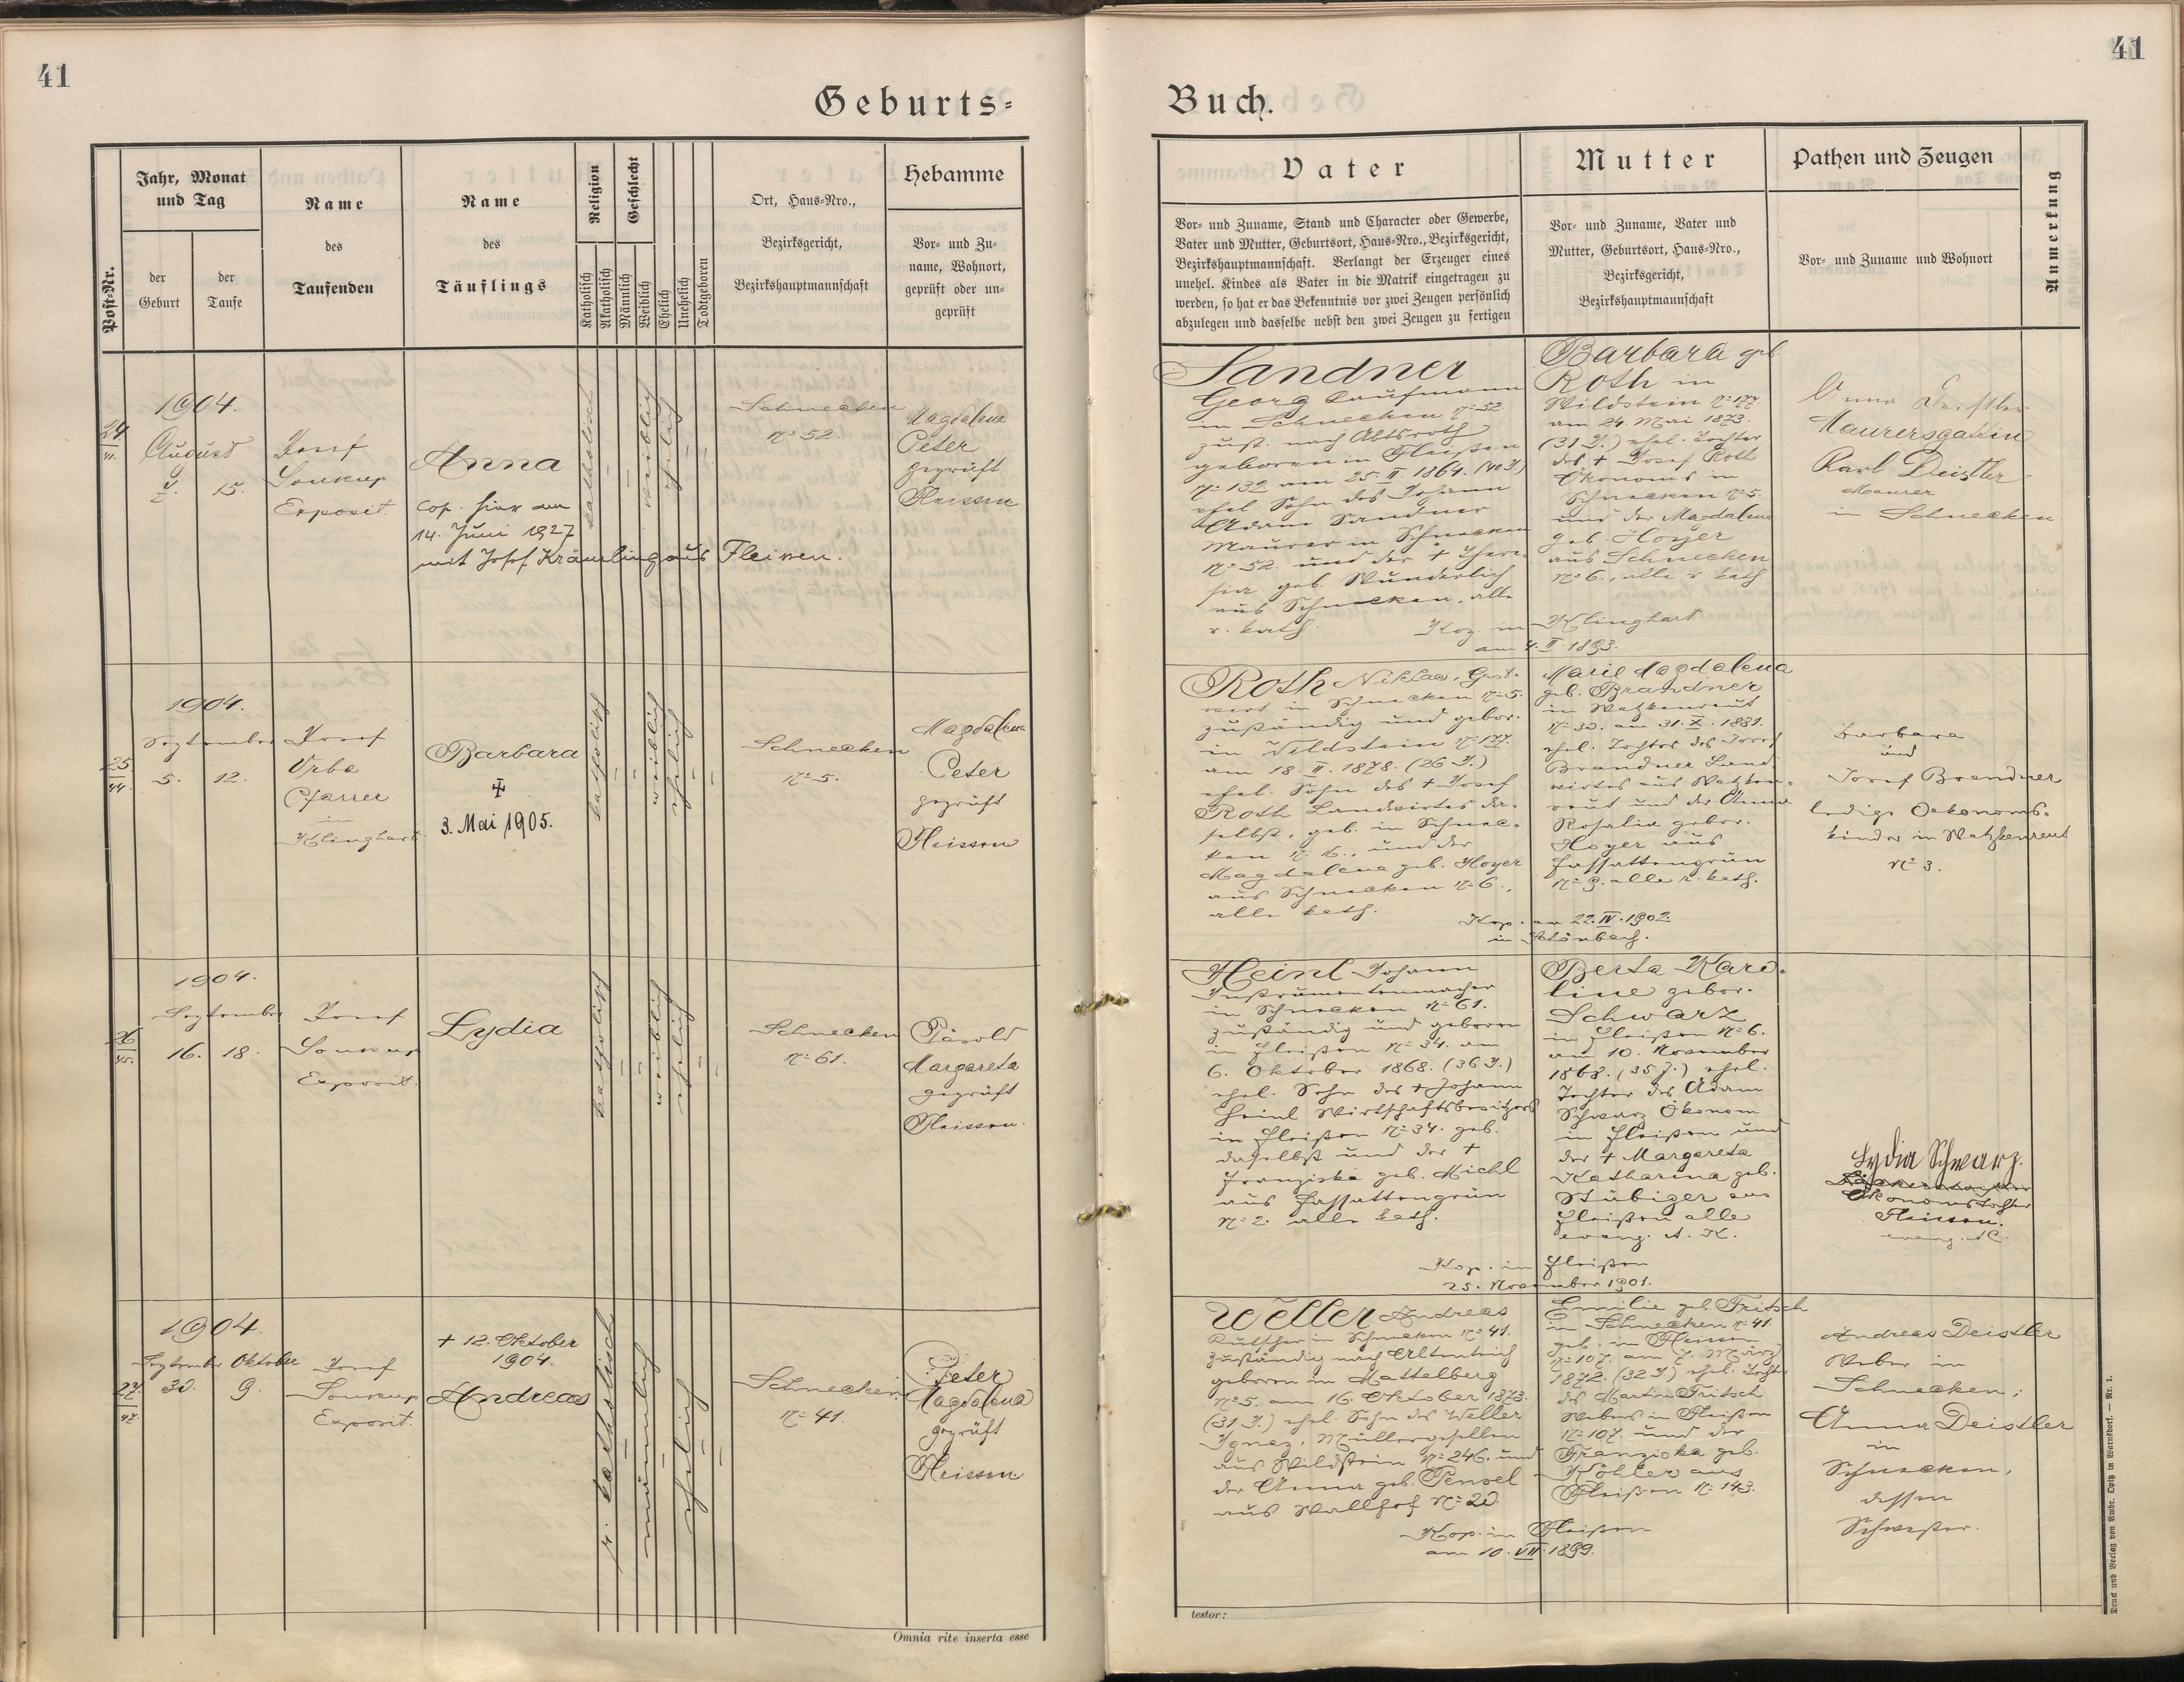 41
Geburts-
Post-Nr.
Jahr, Monat
und Tag
der
Geburt
der
Taufe
Name
des
Taufenden
Name
des
Täuflings
Religion
Katholisch
Akatholisch
Geschlecht
Männlich
Weiblich
Ehelich
Unehelich
Todtgeboren
Ort, Haus-Nro.,
Bezirksgericht,
Bezirkshauptmannschaft
Hebamme
Vor- und Zu-
name, Wohnort,
geprüft oder un-
geprüft
24
1904.
August
7. 15.
Josef
Soukup
Exposit.
Anna
cop. hier am
14. Juni 1927
mit Josef Krämling aus Fleissen.
katholisch
weiblich
ehelich
Schnecken
N: 52.
Magdalena
Peter
geprüft
Fleissen
25
44.
1904.
September
5. 12.
Josef
Vrba
Pfarrer
in
Klinghart.
Barbara
✠
3. Mai 1905.
katholisch
weiblich
ehelich
Schnecken
N: 5.
Magdalena
Peter
geprüft
Fleissen
26
45.
1904.
September
16. 18.
Josef
Soukup
Exposit.
Lydia
katholisch
weiblich
ehelich
Schnecken
N: 61.
Päsold
Margareta
geprüft
Fleissen.
27
47.
1904.
September Oktober
30. 9.
Josef
Soukup
Exposit.
+ 12. Oktober
1904.
Andreas
r. katholisch
männlich
ehelich
Schnecken
N: 41.
Peter
Magdalena
geprüft
Fleissen
Omnia rite inserta esse
41
Buch.
Vater
Vor- und Zuname, Stand und Character oder Gewerbe,
Vater und Mutter, Geburtsort, Haus-Nro., Bezirksgericht,
Bezirkshauptmannschaft. Verlangt der Erzeuger eines
unehel. Kindes als Vater in die Matrik eingetragen zu
werden, so hat er das Bekenntnis vor zwei Zeugen persönlich
abzulegen und dasselbe nebst den zwei Zeugen zu fertigen
Mutter
Vor- und Zuname, Vater und
Mutter, Geburtsort, Haus-Nro.,
Bezirksgericht,
Bezirkshauptmannschaft
Pathen und Zeugen
Vor- und Zuname und Wohnort
Anmerkung
Sandner
Georg Kaufmann
in Schnecken N: 52
zust. nach Abtsroth
geboren in Fleißen
N: 132 am 25. II. 1864. (40 J.)
ehel. Sohn des Johann
Adam Sandner
Maurer in Schnecken
N: 52. und der + There-
sia geb. Wunderlich
aus Schnecken, alle
r. kath.
Barbara geb.
Roth in
Wildstein N: 177.
am 24. Mai 1873.
(31 J.) ehel. Tochter
des + Josef Roth
Ökonoms in
Schnecken N: 5.
und der Magdalena
geb. Hoyer
aus Schnecken
N: 6., alle r. kath
Kop. in Klinghart
am 4. II. 1893.
Anna Deistler
Maurersgattin
Karl Deistler
Maurer
in Schnecken
Roth Niklas, Gast-
wirt in Schnecken N: 5.
zuständig und gebor.
in Wildstein N: 177.
am 18. II. 1878. (26 J.)
ehel. Sohn des + Josef
Roth Landwirtes da-
selbst, geb. in Schnec-
ken N: 16., und der
Magdalena geb. Hoyer
aus Schnecken N: 6.,
alle kath.
Marie Magdalena
geb. Brandner
in Watzkenreut
N: 32. am 31. X. 1881.
ehel. Tochter des Josef
Brandner Land-
wirtes aus Watzken-
reut und der Anna
Rosalia gebor.
Hoyer aus
Fassattengrün
N: 9. alle r. kath.
Kop. am 22. IV. 1902.
in Schönbach.
Barbara
und
Josef Brandner
ledige Oekonoms-
kinder in Watzkenreut
N: 3.
Heinl Johann
Instrumentenmacher
in Schnecken N: 61.
zuständig und geboren
in Fleißen N: 34. am
6. Oktober 1868. (36 J.)
ehel. Sohn des + Johann
Heinl Wirtschaftsbesitzers
in Fleißen N: 34. geb.
daselbst und der +
Franziska geb. Michl
aus Fassattengrün
N: 2. alle kath.
Berta Karo-
line gebor.
Schwarz
in Fleißen N: 6.
am 10. November
1868. (35 J.) ehel.
Tochter des Adam
Schwarz Ökonom
in Fleißen und
der + Margareta
Katharina geb.
Stübiger aus
Fleißen alle
evang. A. K.
Kop. in Fleißen
25. November 1901.
Lydia Schwarz.
Ökonomstochter
Fleissen.
evang. A C.
Weller Andreas
Kutscher in Schnecken N: 41.
zuständig nach Altenteich
geboren in Mattelberg
N: 5. am 16. Oktober 1873.
(31 J.) ehel. Sohn des Weller
Ignaz, Müllergesellen
aus Wildstein N: 246. und
der Anna geb. Pensel
aus Wallhof N: 20.
Emilie geb. Fritsch
in Schnecken N: 41
geb. in Fleissen
N: 107. am 7. März
1872. (32 J.) ehel. Tochter
des Martin Fritsch
Webers in Fleißen
N: 107. und der
Franziska geb.
Köhler aus
Fleißen N: 143.
Kop. in Fleißen
am 10. VII. 1899.
Andreas Deistler
Weber in
Schnecken;
Anna Deistler
in
Schnecken,
dessen
Schwester.
testor:
Druck und Verlag von Ambr. Opitz in Warnsdorf. — Nr. 1.